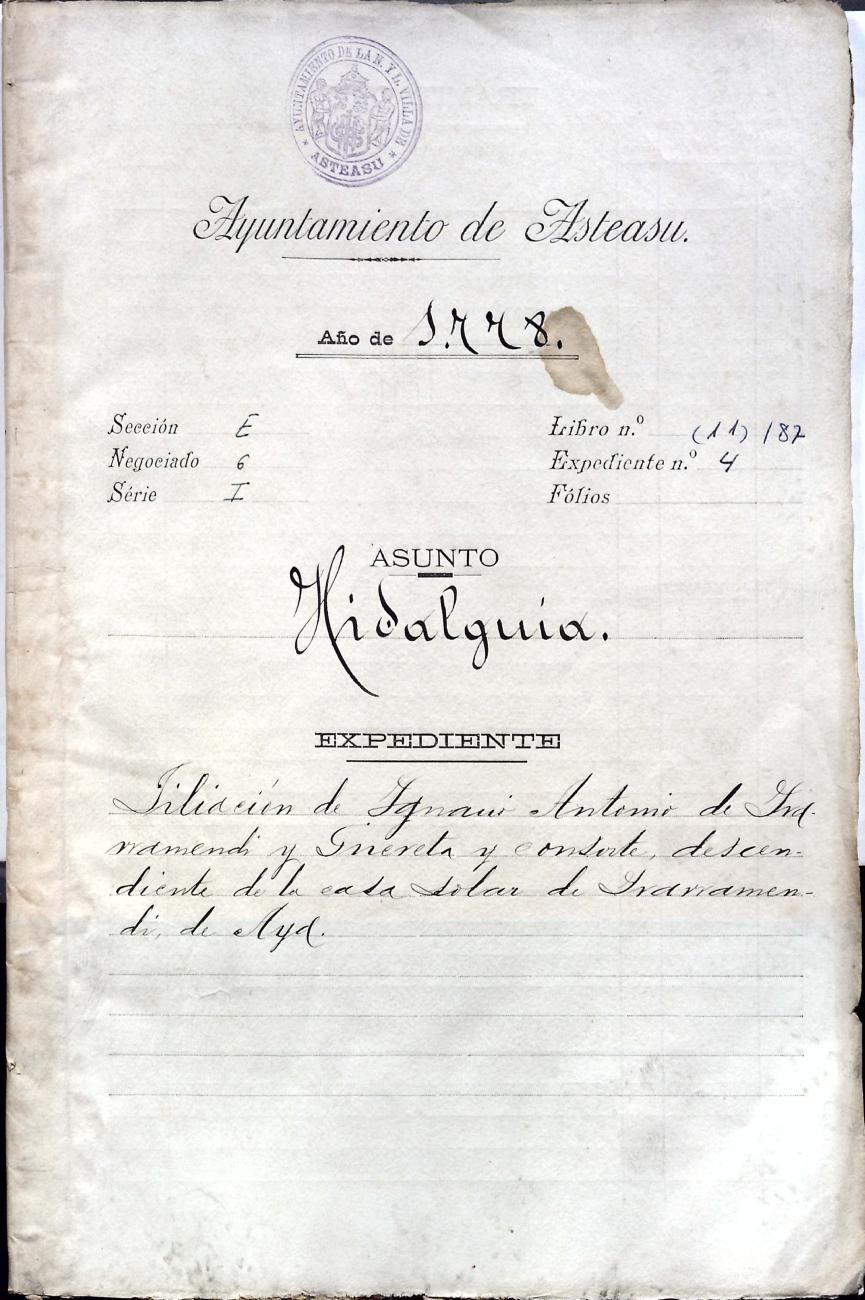 AYUNTAMIENTO DE LA N. Y L. VILLA DE
* ASTEASU *
Ayuntamiento de Asteasu.
Año de 1.778.
Sección E
Libro n.º (11) 182
Negociado 6
Expediente n.º 4
Série I
Fólios
ASUNTO
Hidalguía.
EXPEDIENTE
Filiación de Ignacio Antonio de Ira-
rramendi y Guereta y consorte, descen-
diente de la casa solar de Irarramen-
di, de Aya.